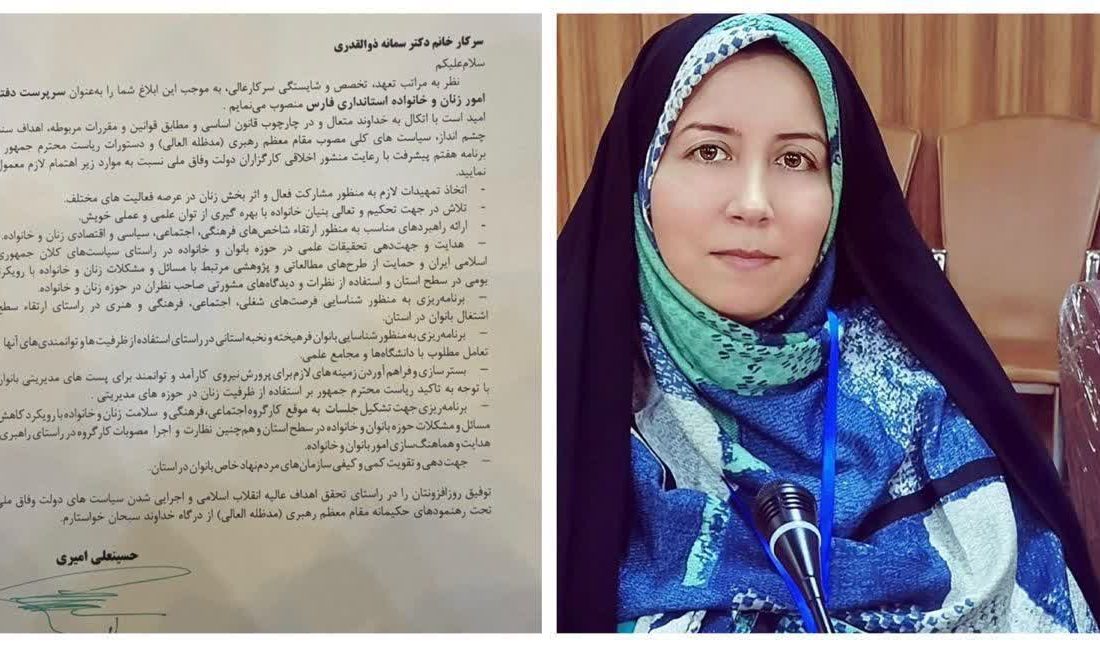 سرکار خانم دکتر سمانه ذوالقدری
سلام‌علیکم
نظر به مراتب تعهد، تخصص و شایستگی سرکارعالی، به موجب این ابلاغ شما را به‌عنوان سرپرست
امور زنان و خانواده استانداری فارس منصوب می‌نمایم .
امید است با اتکال به خداوند متعال و در چارچوب قانون اساسی و مطابق قوانین و مقررات مربوطه، اهداف
چشم انداز، سیاست های کلی مصوب مقام معظم رهبری (مدظله العالی) و دستورات ریاست محترم جمهور
برنامه هفتم پیشرفت با رعایت منشور اخلاقی کارگزاران دولت وفاق ملی نسبت به موارد زیر اهتمام لازم معمول
نمایید.
- اتخاذ تمهیدات لازم به منظور مشارکت فعال و اثر بخش زنان در عرصه فعالیت های مختلف.
- تلاش در جهت تحکیم و تعالی بنیان خانواده با بهره گیری از توان علمی و عملی خویش.
- ارائه راهبردهای مناسب به منظور ارتقاء شاخص‌های فرهنگی، اجتماعی، سیاسی و اقتصادی زنان و خانواده.
– هدایت و جهت‌دهی تحقیقات علمی در حوزه بانوان و خانواده در راستای سیاست‌های کلان جمهوری
اسلامی ایران و حمایت از طرح‌های مطالعاتی و پژوهشی مرتبط با مسائل و مشکلات زنان و خانواده با
بومی در سطح استان و استفاده از نظرات و دیدگاه‌های مشورتی صاحب نظران در حوزه زنان و خانواده.
– برنامه‌ریزی به منظور شناسایی فرصت‌های شغلی، اجتماعی، فرهنگی و هنری در راستای ارتقاء سطح
اشتغال بانوان در استان.
– برنامه‌ریزی به منظور شناسایی بانوان فرهیخته و نخبه استانی در راستای استفاده از ظرفیت‌ها و توانمندی‌های آنها
تعامل مطلوب با دانشگاه‌ها و مجامع علمی.
– بستر سازی و فراهم آوردن زمینه های لازم برای پرورش نیروی کارآمد و توانمند برای پست های مدیریتی بانوان
با توجه به تاکید ریاست محترم جمهور بر استفاده از ظرفیت زنان در حوزه های مدیریتی .
– برنامه‌ریزی جهت تشکیل جلسات به موقع کارگروه اجتماعی، فرهنگی و سلامت زنان و خانواده با رویکرد کاهش
مسائل و مشکلات حوزه بانوان و خانواده در سطح استان و هم‌چنین نظارت و اجرا مصوبات کارگروه در راستای راهبری
هدایت و هماهنگ‌سازی امور بانوان و خانواده.
– جهت‌دهی و تقویت کمی و کیفی سازمان‌های مردم‌نهاد خاص بانوان در استان.
توفیق روزافزونتان را در راستای تحقق اهداف عالیه انقلاب اسلامی و اجرایی شدن سیاست های دولت وفاق ملی
تحت رهنمودهای حکیمانه مقام معظم رهبری (مدظله العالی) از درگاه خداوند سبحان خواستارم.
حسینعلی امیری